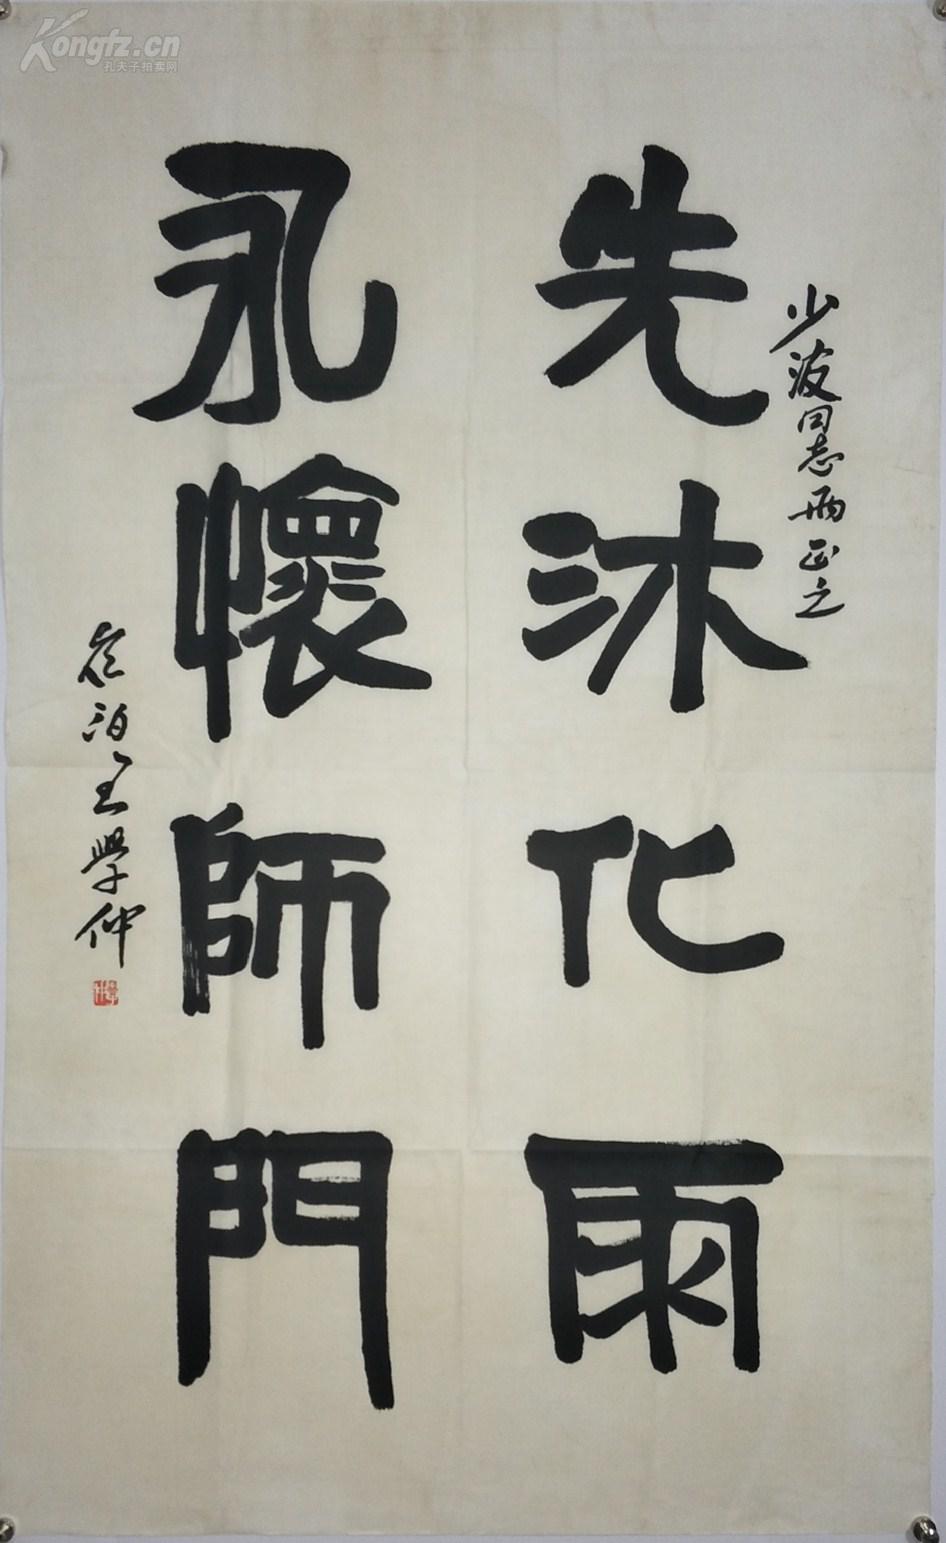 少波同志两正之
先沐化雨
永懷師門
泊王學仲
Kongfz.cn
孔夫子拍卖网